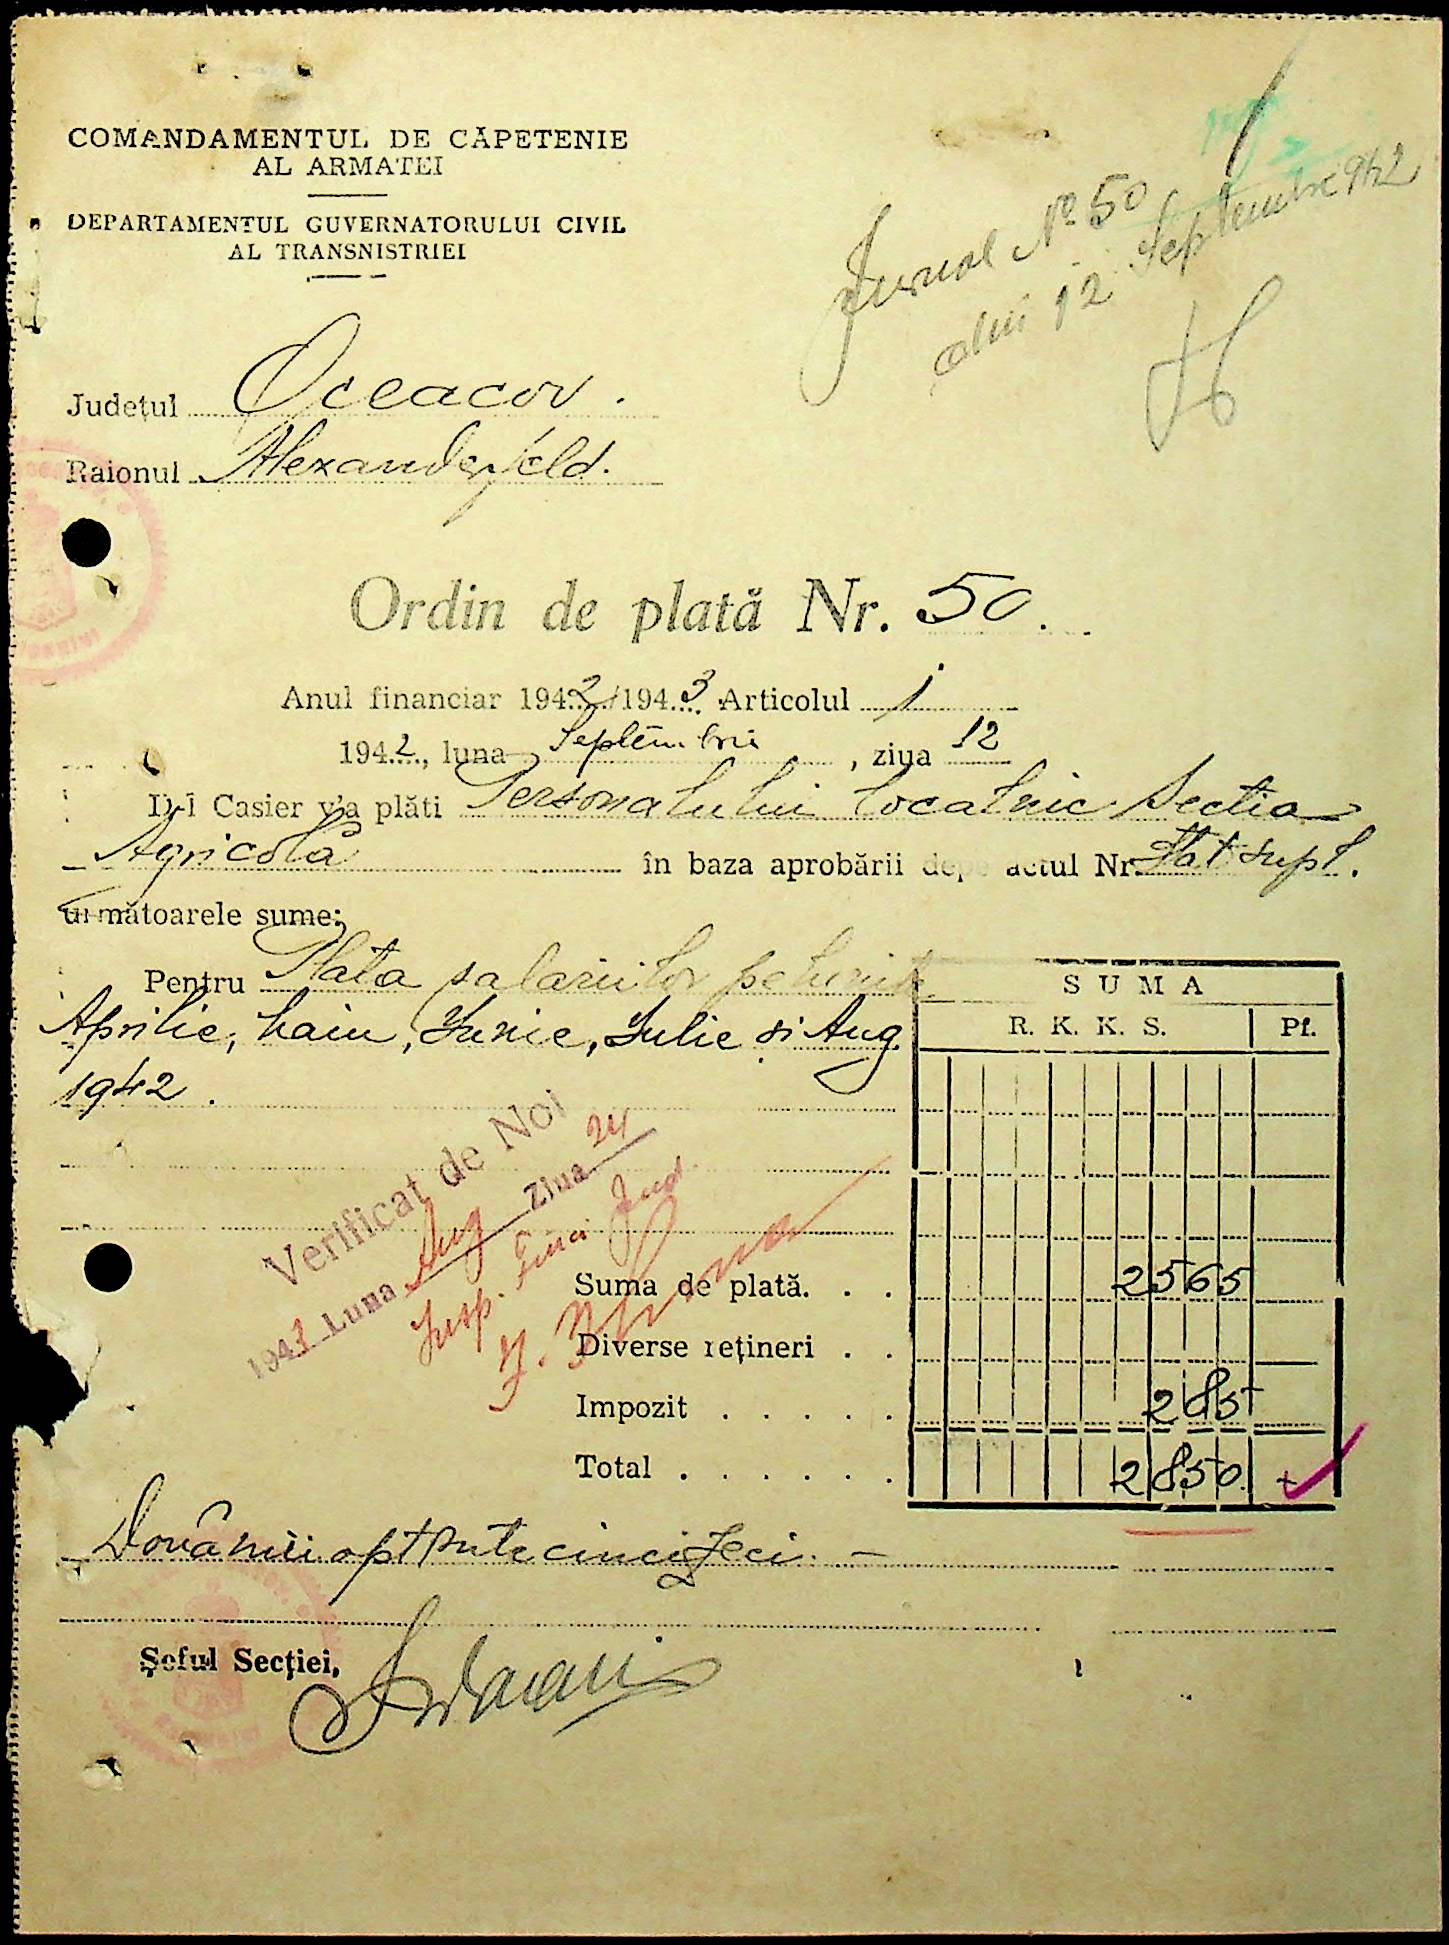 COMANDAMENTUL DE CĂPETENIE
AL ARMATEI
DEPARTAMENTUL GUVERNATORULUI CIVIL
AL TRANSNISTRIEI
Jurnal Nº 50
din 12 Septembrie 942
Județul Oceacov.
Raionul Alexanderfeld.
Ordin de plată Nr. 50.
Anul financiar 1942/1943 Articolul 1
1942, luna Septembrie, ziua 12
D-l Casier v'a plăti Personalului localnic Sectia
Agricolă în baza aprobării depe actul Nr. Stat supl.
următoarele sume:
Pentru Plata salariilor pe lunile
Aprilie, Maiu, Iunie, Iulie și Aug.
1942.
SUMA
R. K. K. S. Pf.
Verificat de Noi
1943 Luna Aug Ziua 24
Insp. Finci Jud.
Suma de plată. . . 2565
Diverse rețineri . .
Impozit . . . . . 285
Total . . . . . . 2850
Două mii opt sute cincizeci. —
Șeful Secției,